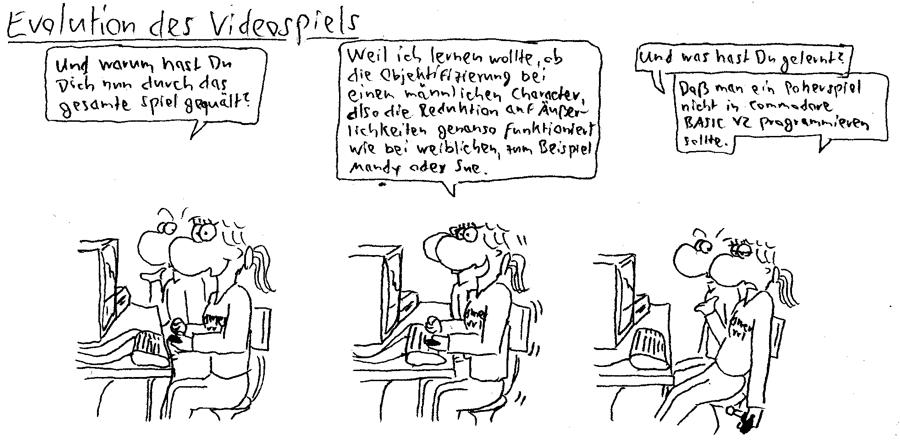 Evolution des Videospiels
Und warum hast Du
Dich nun durch das
gesamte Spiel gequält?
Weil ich lernen wollte, ob
die Objektifizierung bei
einem männlichen Character,
also die Reduktion auf Äußer-
lichkeiten genauso funktioniert
wie bei weiblichen, zum Beispiel
Mandy oder Sue.
Und was hast Du gelernt?
Daß man ein Pokerspiel
nicht in Commodore
BASIC V2 programmieren
sollte.